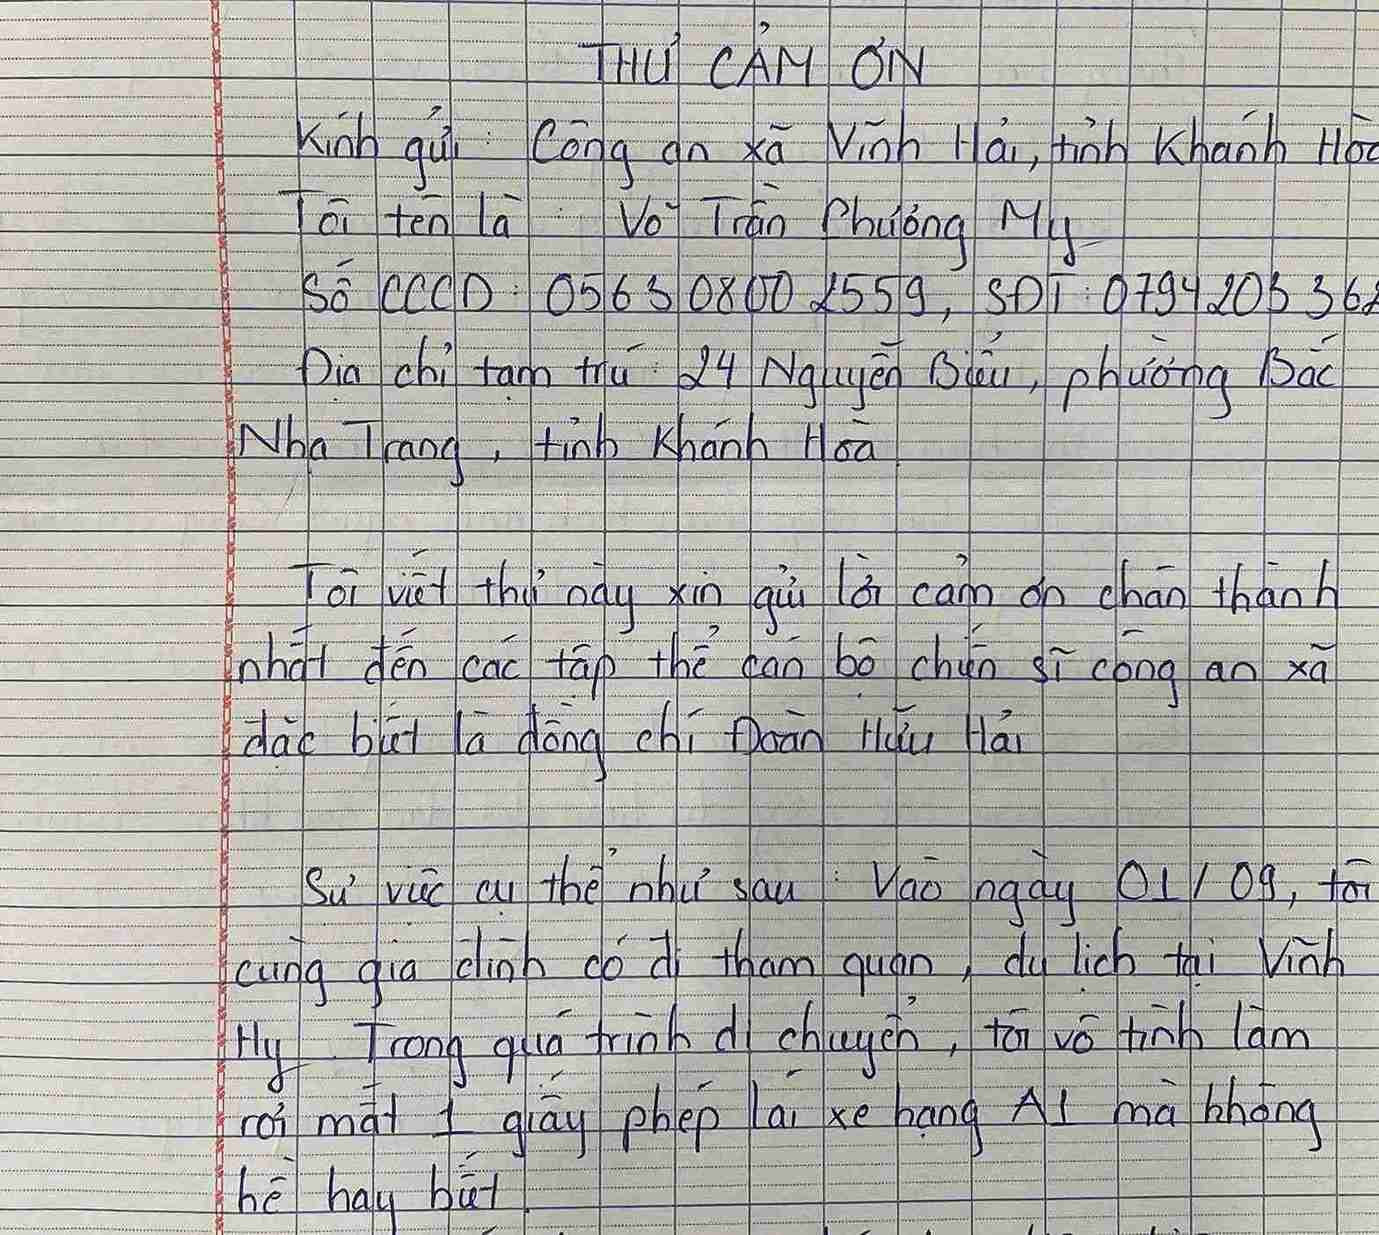 THƯ CẢM ƠN
Kính gửi: Công an xã Vĩnh Hải, tỉnh Khánh Hòa
Tôi tên là: Võ Trần Phương My
Số CCCD: 056308002559, SĐT: 079420336
Địa chỉ tạm trú: 24 Nguyễn Biểu, phường Bắc
Nha Trang, tỉnh Khánh Hòa
Tôi viết thư này xin gửi lời cảm ơn chân thành
nhất đến các tập thể cán bộ chiến sĩ công an xã
đặc biệt là đồng chí Đoàn Hữu Hải
Sự việc cụ thể như sau: Vào ngày 01/09, tôi
cùng gia đình có đi tham quan, du lịch tại Vĩnh
Hy. Trong quá trình di chuyển, tôi vô tình làm
rơi mất 1 giấy phép lái xe hạng A1 mà không
hề hay biết.